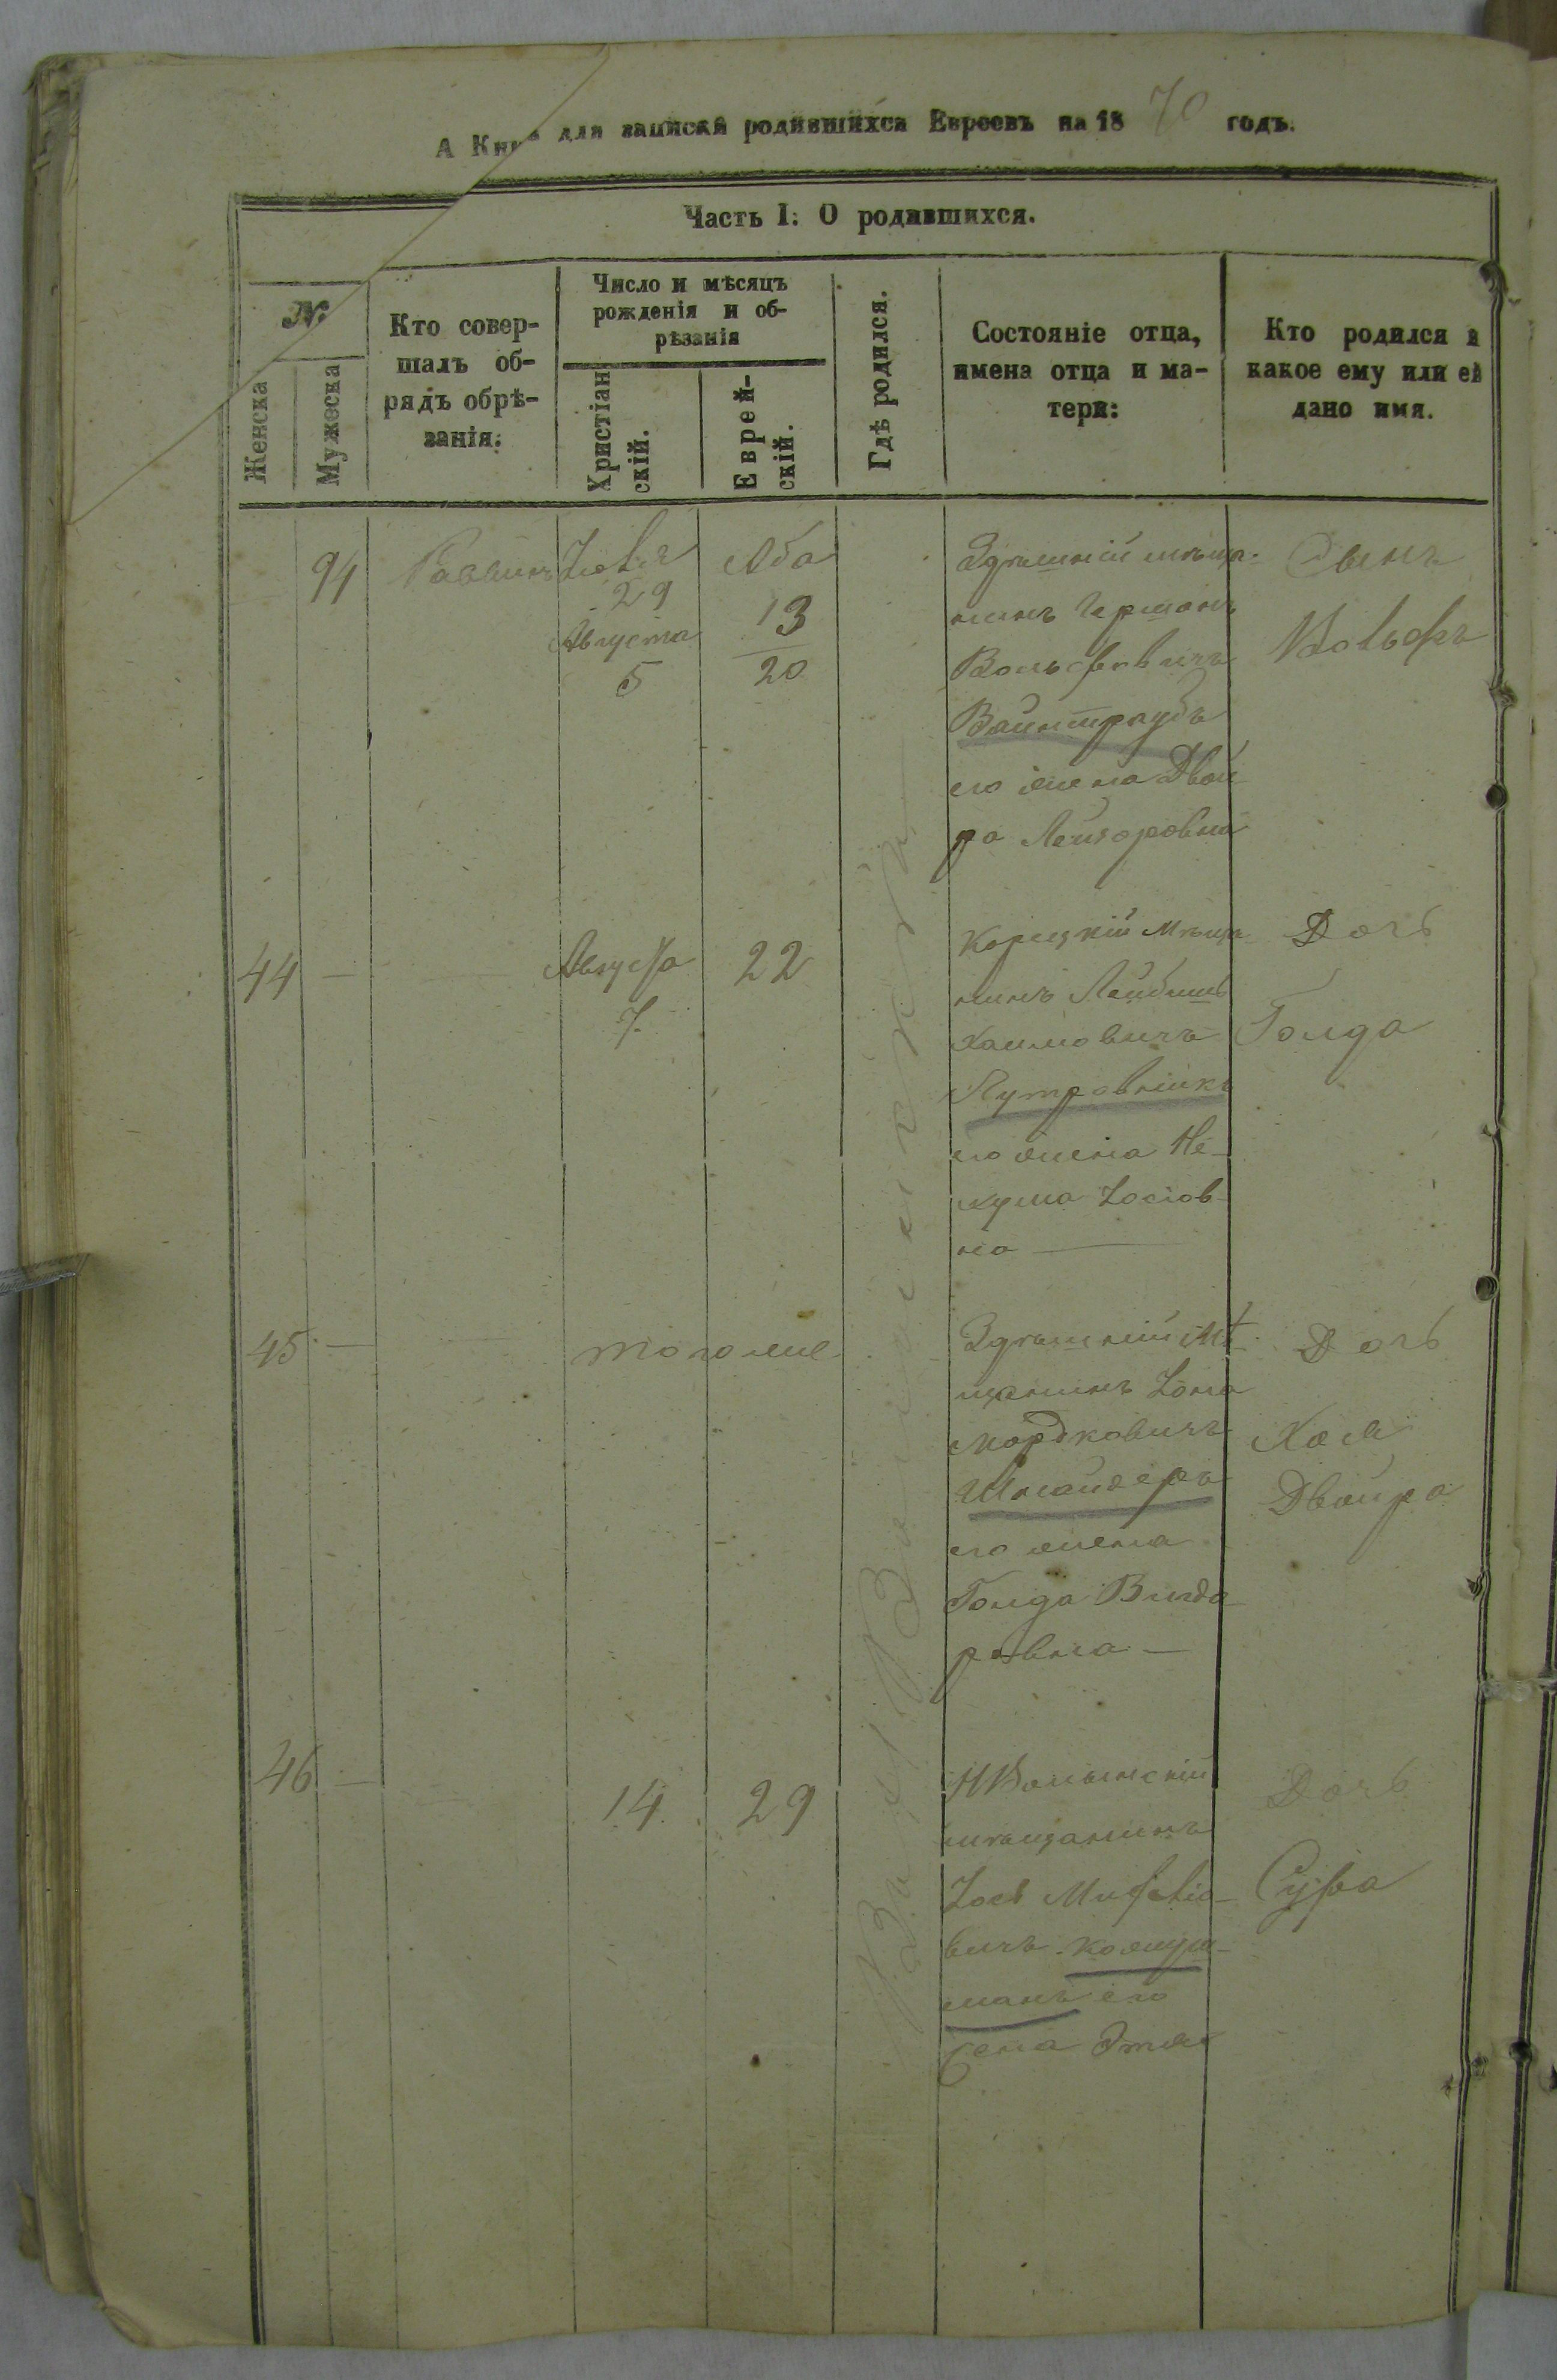 А Книга для записки родившихся Евреевъ на 1870 годъ.
Часть I. О родившихся.
№
Женска
Мужеска
Кто совер-
шалъ об-
рядъ обрѣ-
занія.
Число и мѣсяцъ
рожденія и об-
рѣзанія
Христіан
скій.
Еврей-
скій.
Гдѣ родился.
Состояніе отца,
имена отца и ма-
тери:
Кто родился и
какое ему или ей
дано имя.
94
Раввинъ
Іюля
29
Августа
5
Аба
13
20
Здѣшній мѣща-
нинъ Германъ
Вольфовичъ
Вайнтраубъ
его жена Двой
ра Лейзоровна
Сынъ
Вольфъ
44 —
Августа
7
22
Корецкій мѣща
нинъ Лейбишъ
Хаимовичъ
его жена Не-
хума Іосіов-
на —
Дочь
Голда
45 —
того же
Здѣшній мѣ
щанинъ Іона
Мордковичъ
Шнайдеръ
его жена
Голда Вигдо
ровна —
Дочь
Хая
Двойра
46 —
14
29
НВолынскій
мѣщанинъ
Іось
вичъ
манъ его
жена
Дочь
Сура